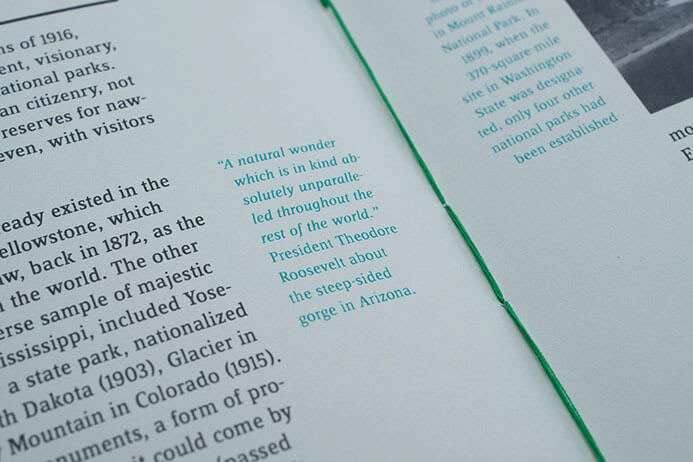 ns of 1916,
ent, visionary,
ational parks.
an citizenry, not
reserves for naw-
even, with visitors
ready existed in the
ellowstone, which
aw, back in 1872, as the
the world. The other
erse sample of majestic
ississippi, included Yose-
a state park, nationalized
th Dakota (1903), Glacier in
Mountain in Colorado (1915).
onuments, a form of pro-
it could come by
(passed
“A natural wonder
which is in kind ab-
solutely unparalle-
led throughout the
rest of the world.”
President Theodore
Roosevelt about
the steep-sided
gorge in Arizona.
photo of
in Mount Rain
National Park. In
1899, when the
370-square-mile
site in Washington
State was designa-
ted, only four other
national parks had
been established
mo